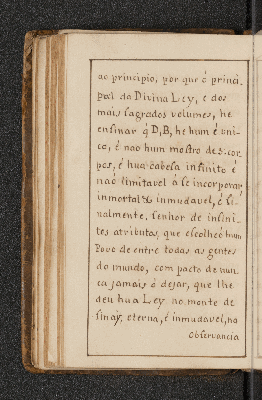 ao principio, por que ó princi,
pal da Divina Ley, é dos
mais sagrados volumes, he
ensinar q̃ D,B, he hum é uni-
co, é nao hum mostro de 3: cor-
pos, é hua cabesa infinito é
naó limitavel á se incorporar,
inmortal & inmudavel, é fi-
nalmente, senhor de infini-
tes atributos, que escolheó hum
Povo de entre todas as gentes
do mundo, com pacto de nun-
ca jamais ó dejar, que lhe
deu hua Ley no monte de
Sinay, eterna, é inmudavel, na
Observancia